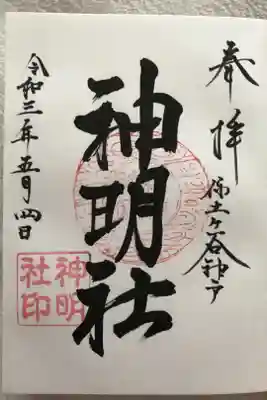 奉拝
保土ヶ谷神戸
神明社
神明
社印
令和三年五月四日